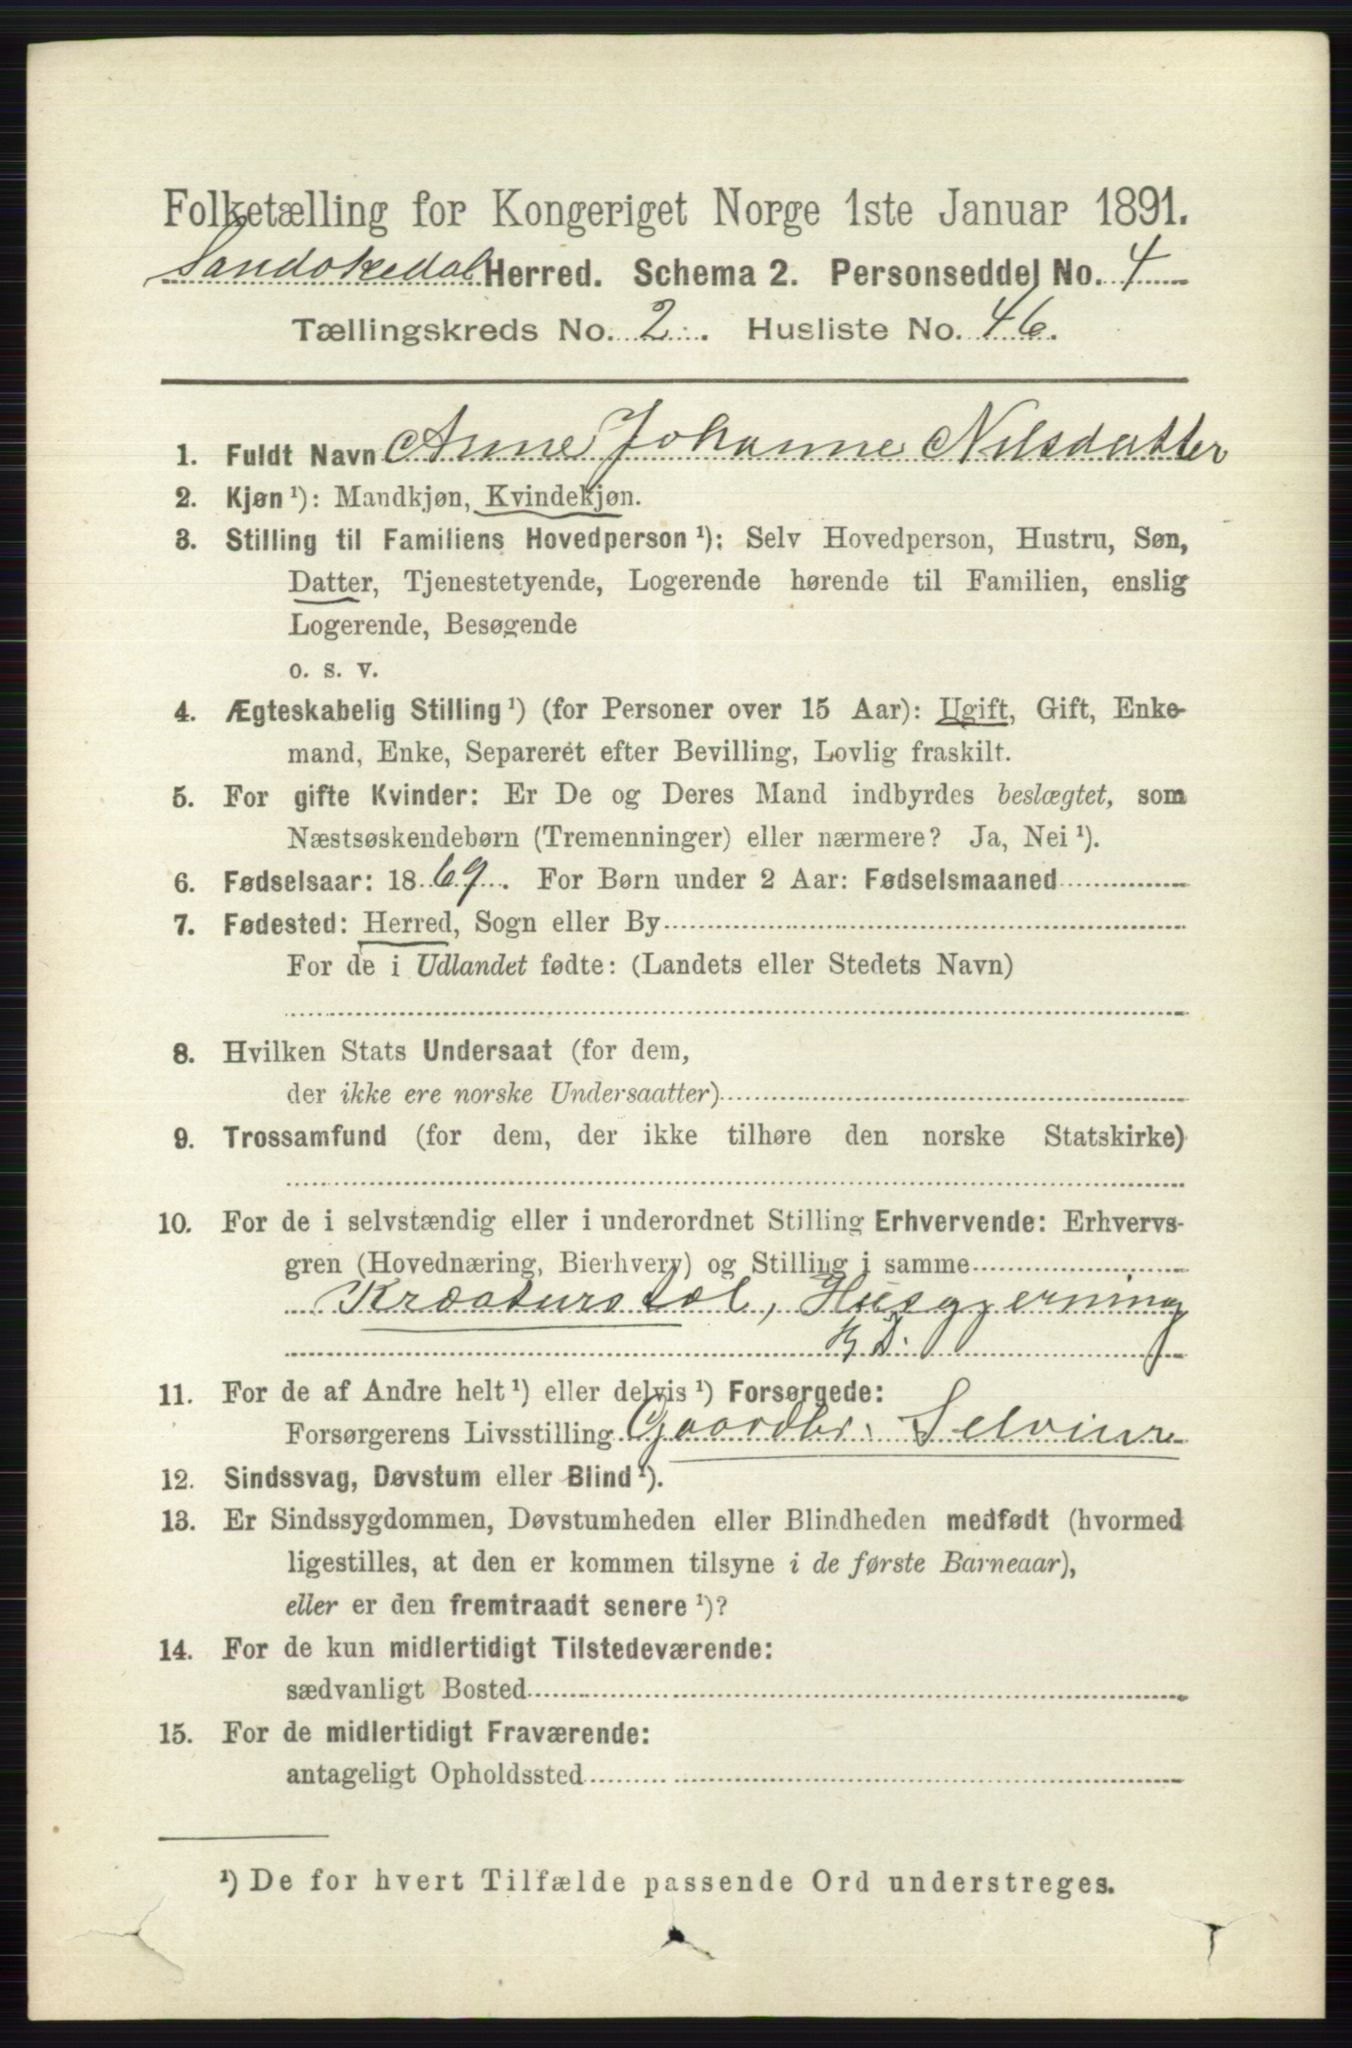 Folketælling for Kongeriget Norge 1ste Januar 1891.
Sandökedal Herred. Schema 2. Personseddel No. 4
Tællingskreds No. 2. Husliste No. 46.
1. Fuldt Navn Anne Johanne Nilsdatter
2. Kjøn ¹): Mandkjøn, Kvindekjøn.
3. Stilling til Familiens Hovedperson ¹): Selv Hovedperson, Hustru, Søn,
Datter, Tjenestetyende, Logerende hørende til Familien, enslig
Logerende, Besøgende
o. s. v.
4. Ægteskabelig Stilling ¹) (for Personer over 15 Aar): Ugift, Gift, Enke-
mand, Enke, Separeret efter Bevilling, Lovlig fraskilt.
5. For gifte Kvinder: Er De og Deres Mand indbyrdes beslægtet, som
Næstsøskendebørn (Tremenninger) eller nærmere? Ja, Nei ¹).
6. Fødselsaar: 1869. For Børn under 2 Aar: Fødselsmaaned
7. Fødested: Herred, Sogn eller By
For de i Udlandet fødte: (Landets eller Stedets Navn)
8. Hvilken Stats Undersaat (for dem,
der ikke ere norske Undersaatter)
9. Trossamfund (for dem, der ikke tilhøre den norske Statskirke)
10. For de i selvstændig eller i underordnet Stilling Erhvervende: Erhvervs-
gren (Hovednæring, Bierhverv) og Stilling i samme
Kreaturstel, Husgjerning
11. For de af Andre helt ¹) eller delvis ¹) Forsørgede:
Forsørgerens Livsstilling Gaardbr. Selveier
12. Sindssvag, Døvstum eller Blind ¹).
13. Er Sindssygdommen, Døvstumheden eller Blindheden medfødt (hvormed
ligestilles, at den er kommen tilsyne i de første Barneaar),
eller er den fremtraadt senere ¹)?
14. For de kun midlertidigt Tilstedeværende:
sædvanligt Bosted
15. For de midlertidigt Fraværende:
antageligt Opholdssted
¹) De for hvert Tilfælde passende Ord understreges.